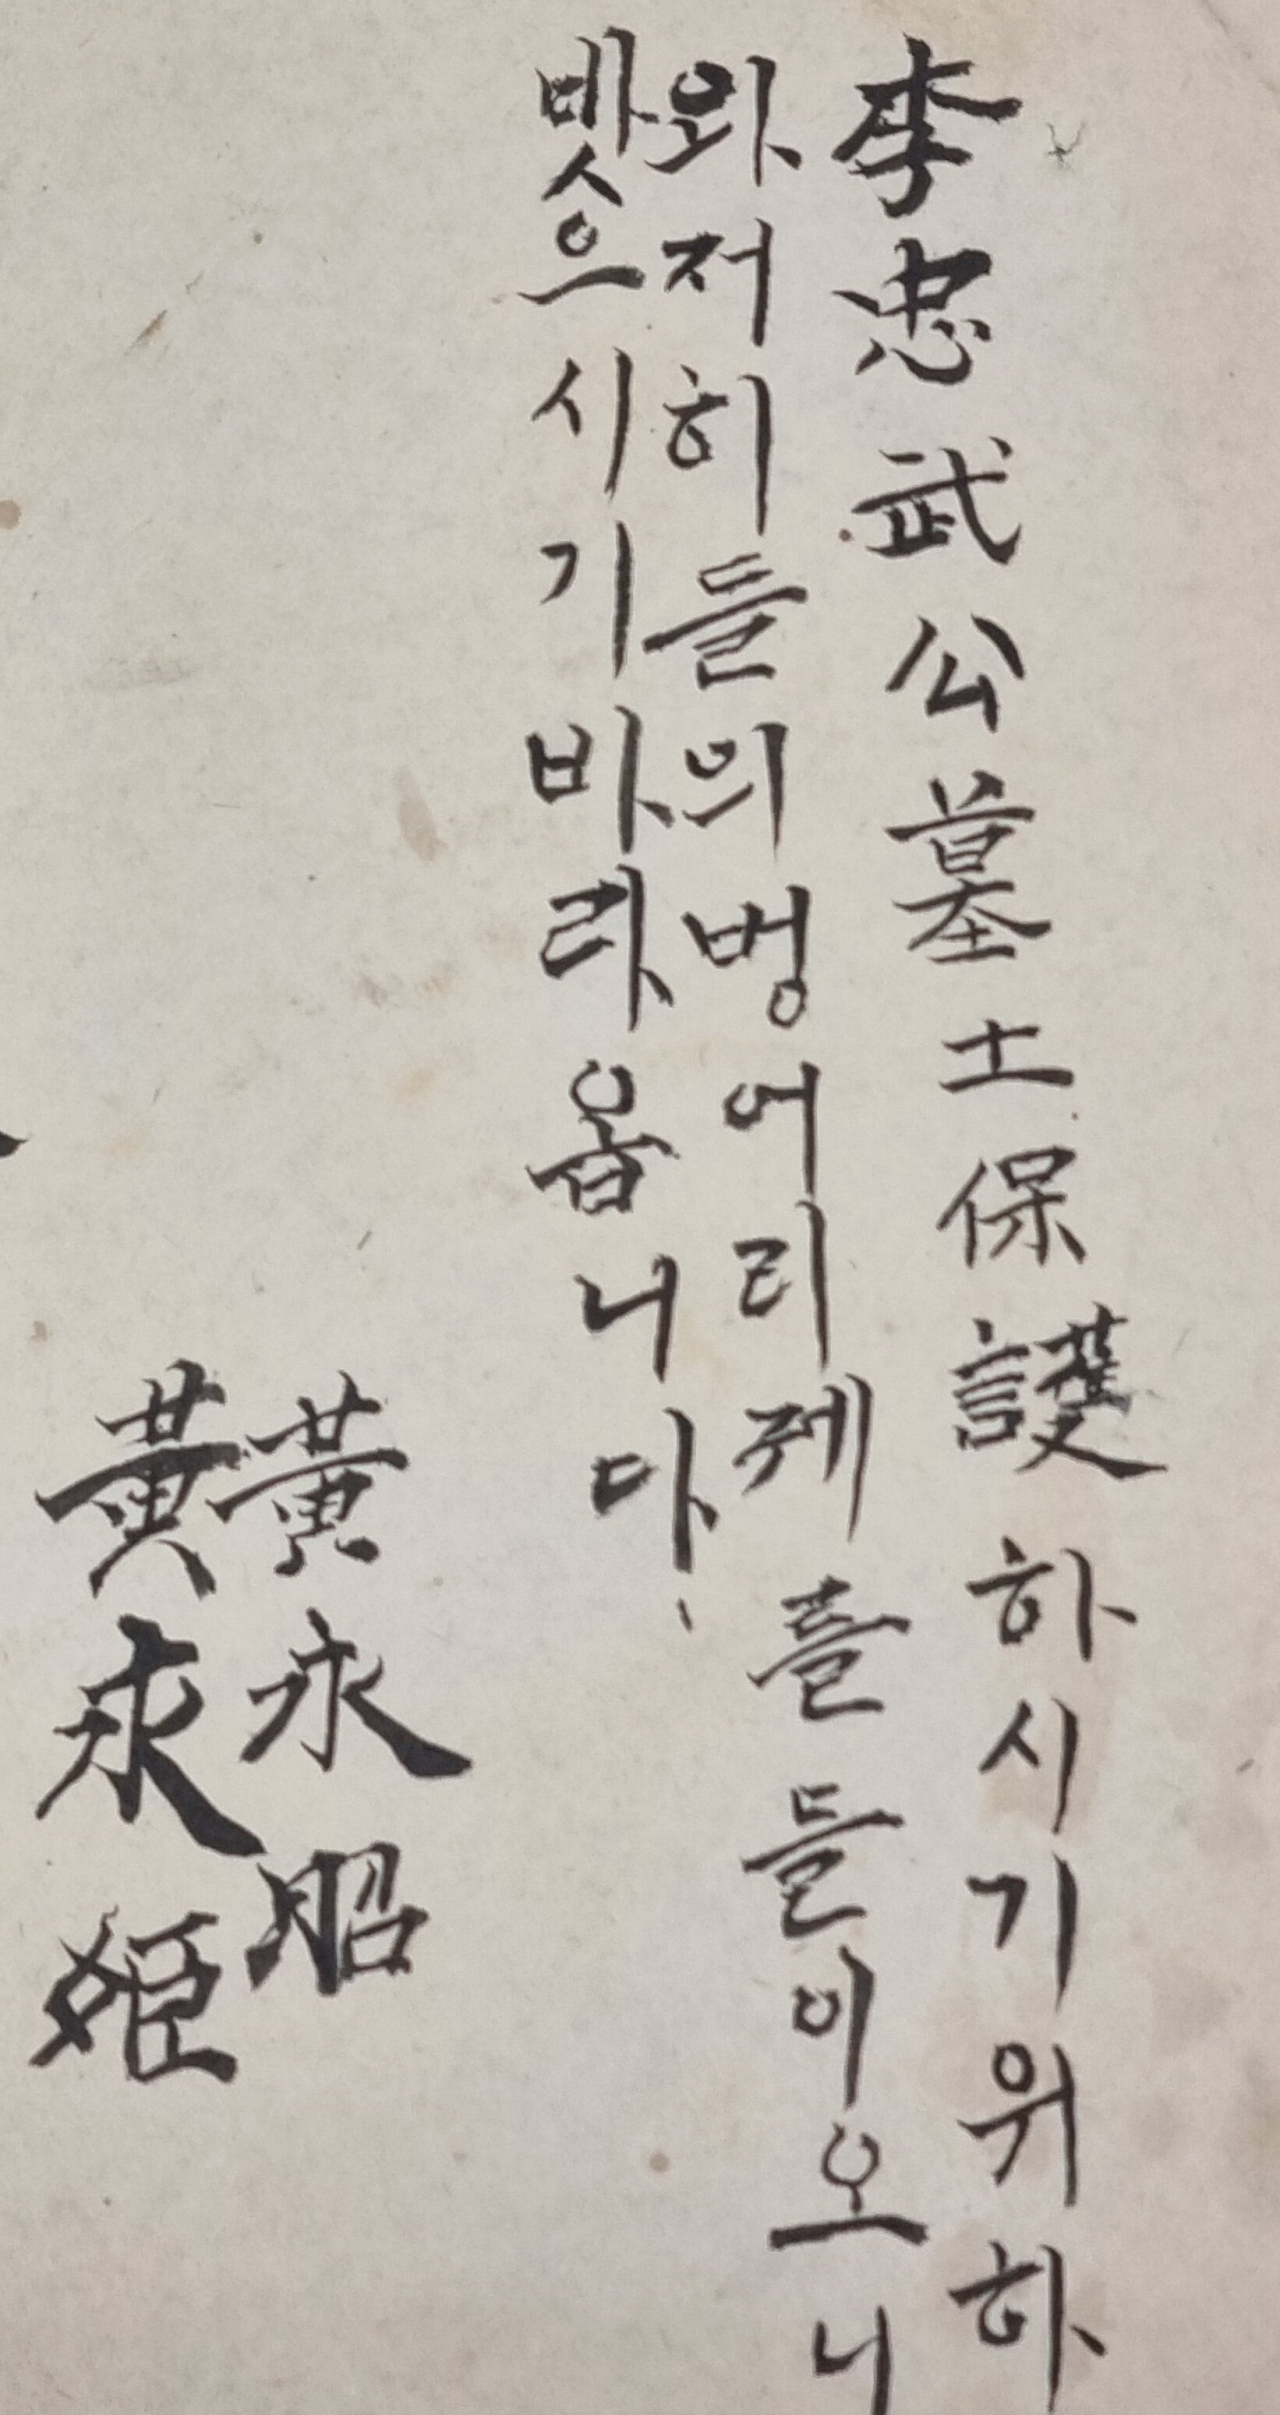 李忠武公墓土保護하시기위하
와저히들의벙어리제를들이오니
밧으시기바라옵니다
黃永昭
黃永姬